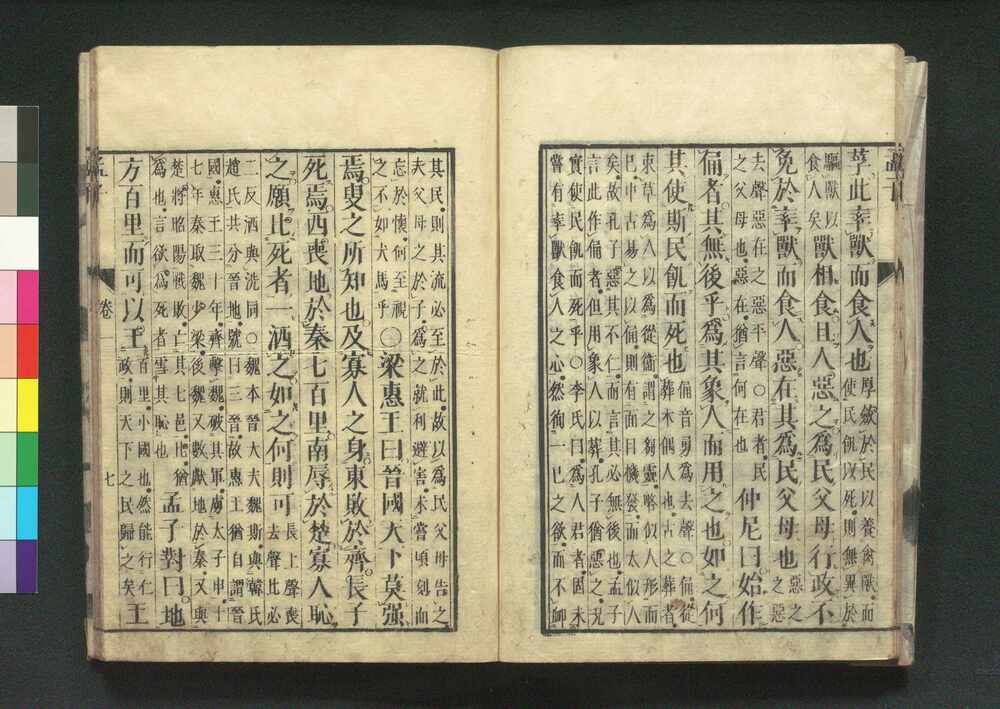 莩此率獸而食人也
厚斂於民以養禽獸而
使民飢以死則無異於
驅獸以
食人矣
獸相食且人惡之為民父母行政不
免於率獸而食人惡在其為民父母也
惡之
之惡
去聲惡在之惡平聲○君者民
之父母也惡在猶言何在也
仲尼曰始作
俑者其無後乎為其象人而用之也如之何
其使斯民飢而死也
俑音勇為去聲○俑從
葬木偶人也古之葬者
束草為人以為從衛謂之芻靈略似人形而
已中古易之以俑則有面目機發而太似人
矣故孔子惡其不仁而言其必無後也孟子
言此作俑者但用象人以葬孔子猶惡之况
實使民飢而死乎○李氏曰為人君者固未
嘗有率獸食人之心然徇一己之欲而不卹
其民則其流必至於此故以為民父母告之
夫父母之於子為之就利避害未嘗頃刻而
忘於懷何至視
之不如犬馬乎
○梁惠王曰晉國天下莫强
焉叟之所知也及寡人之身東敗於齊長子
死焉西喪地於秦七百里南辱於楚寡人恥
之願比死者一洒之如之何則可
長上聲喪
去聲比必
二反洒與洗同○魏本晉大夫魏斯與韓氏
趙氏共分晉地號曰三晉故惠王猶自謂晉
國惠王三十年齊擊魏破其軍虜太子申十
七年秦取魏少梁後魏又數獻地於秦又與
楚將昭陽戰敗亡其七邑比猶
為也言欲為死者雪其恥也
孟子對曰地
方百里而可以王
百里小國也然能行仁
政則天下之民歸之矣
王
卷一
七